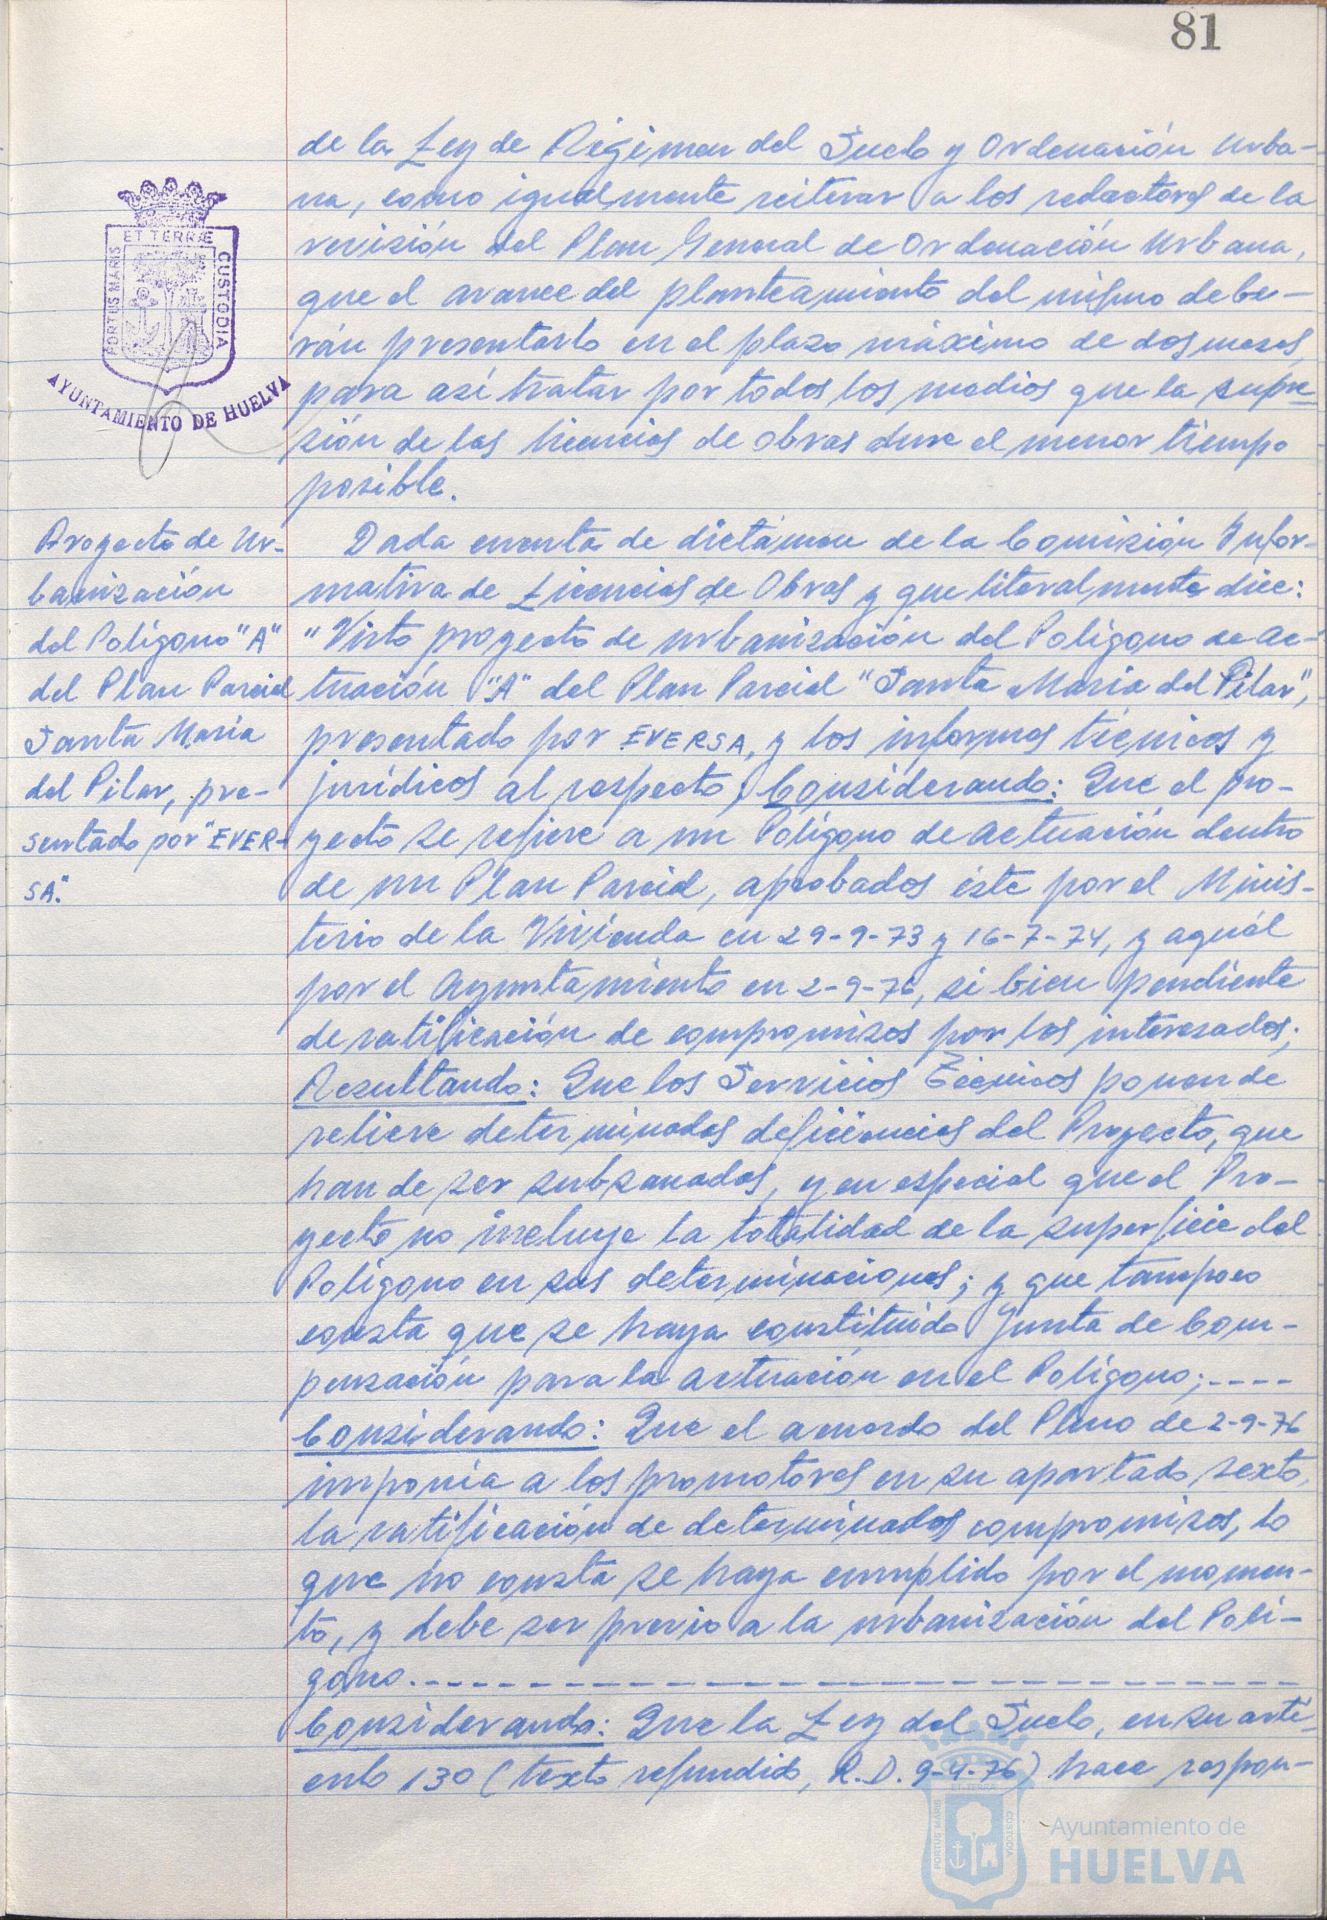 81
de la Ley de Régimen del Suelo y Ordenación Urba-
na, como igualmente reiterar a los redactores de la
revisión del Plan General de Ordenación Urbana,
que el avance del planteamiento del mismo debe-
rán presentarlo en el plazo máximo de dos meses,
para así tratar por todos los medios que la supre-
sión de las licencias de obras dure el menor tiempo
posible.
PORTUS MARIS
ET TERRÆ
CUSTODIA
AYUNTAMIENTO DE HUELVA
Proyecto de Ur-
banización
del Polígono "A"
del Plan Parcial
Santa María
del Pilar, pre-
sentado por "EVER-
SA."
Dada cuenta de dictámen de la Comisión Infor-
mativa de Licencias de Obras y que literalmente dice:
"Visto proyecto de urbanización del Polígono de ac-
tuación "A" del Plan Parcial "Santa María del Pilar",
presentado por EVERSA, y los informes técnicos y
jurídicos al respecto, Considerando: Que el pro-
yecto se refiere a un Polígono de actuación dentro
de un Plan Parcial, aprobados éste por el Minis-
terio de la Vivienda en 29-9-73 y 16-7-74, y aquél
por el Ayuntamiento en 2-9-76, si bien pendiente
de ratificación de compromisos por los interesados;
Resultando: Que los Servicios Técnicos ponen de
relieve determinadas deficiencias del Proyecto, que
han de ser subsanadas, y en especial que el Pro-
yecto no incluye la totalidad de la superficie del
Polígono en sus determinaciones; y que tampoco
consta que se haya constituido Junta de Com-
pensación para la actuación en el Polígono;----
Considerando: Que el acuerdo del Pleno de 2-9-76
imponía a los promotores en su apartado sexto,
la ratificación de determinados compromisos, lo
que no consta se haya cumplido por el momen-
to, y debe ser previo a la urbanización del Polí-
gono.-------------------------
Considerando: Que la Ley del Suelo, en su artí-
culo 130 (texto refundido, R.D. 9-4-76) hace respon-
PORTUS MARIS
ET TERRÆ
CUSTODIA
Ayuntamiento de
HUELVA